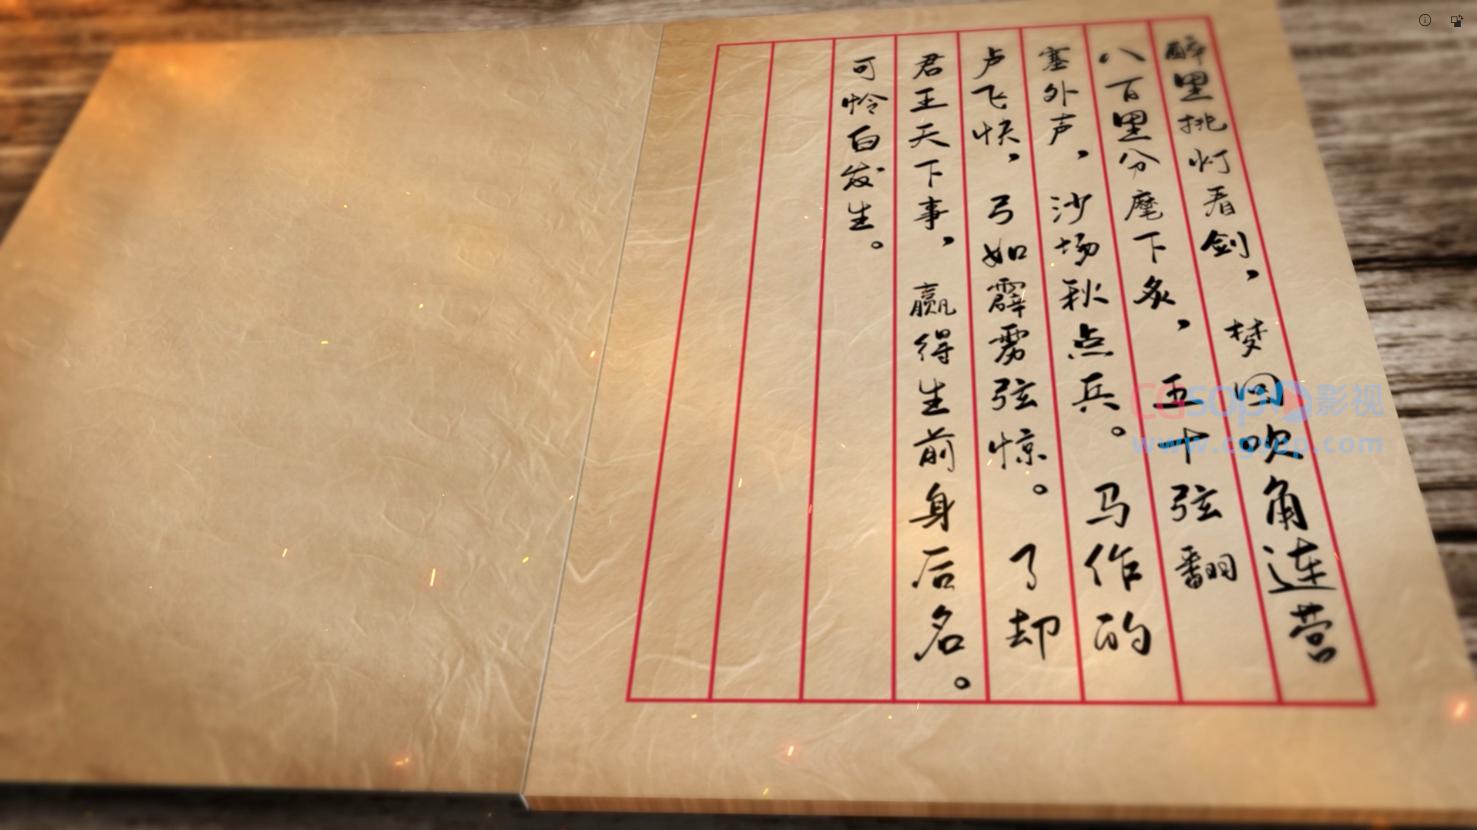 醉里挑灯看剑，梦回吹角连营
八百里分麾下炙，五十弦翻
塞外声，沙场秋点兵。马作的
卢飞快，弓如霹雳弦惊。了却
君王天下事，赢得生前身后名。
可怜白发生。
CGsop影视
www.cgsop.com